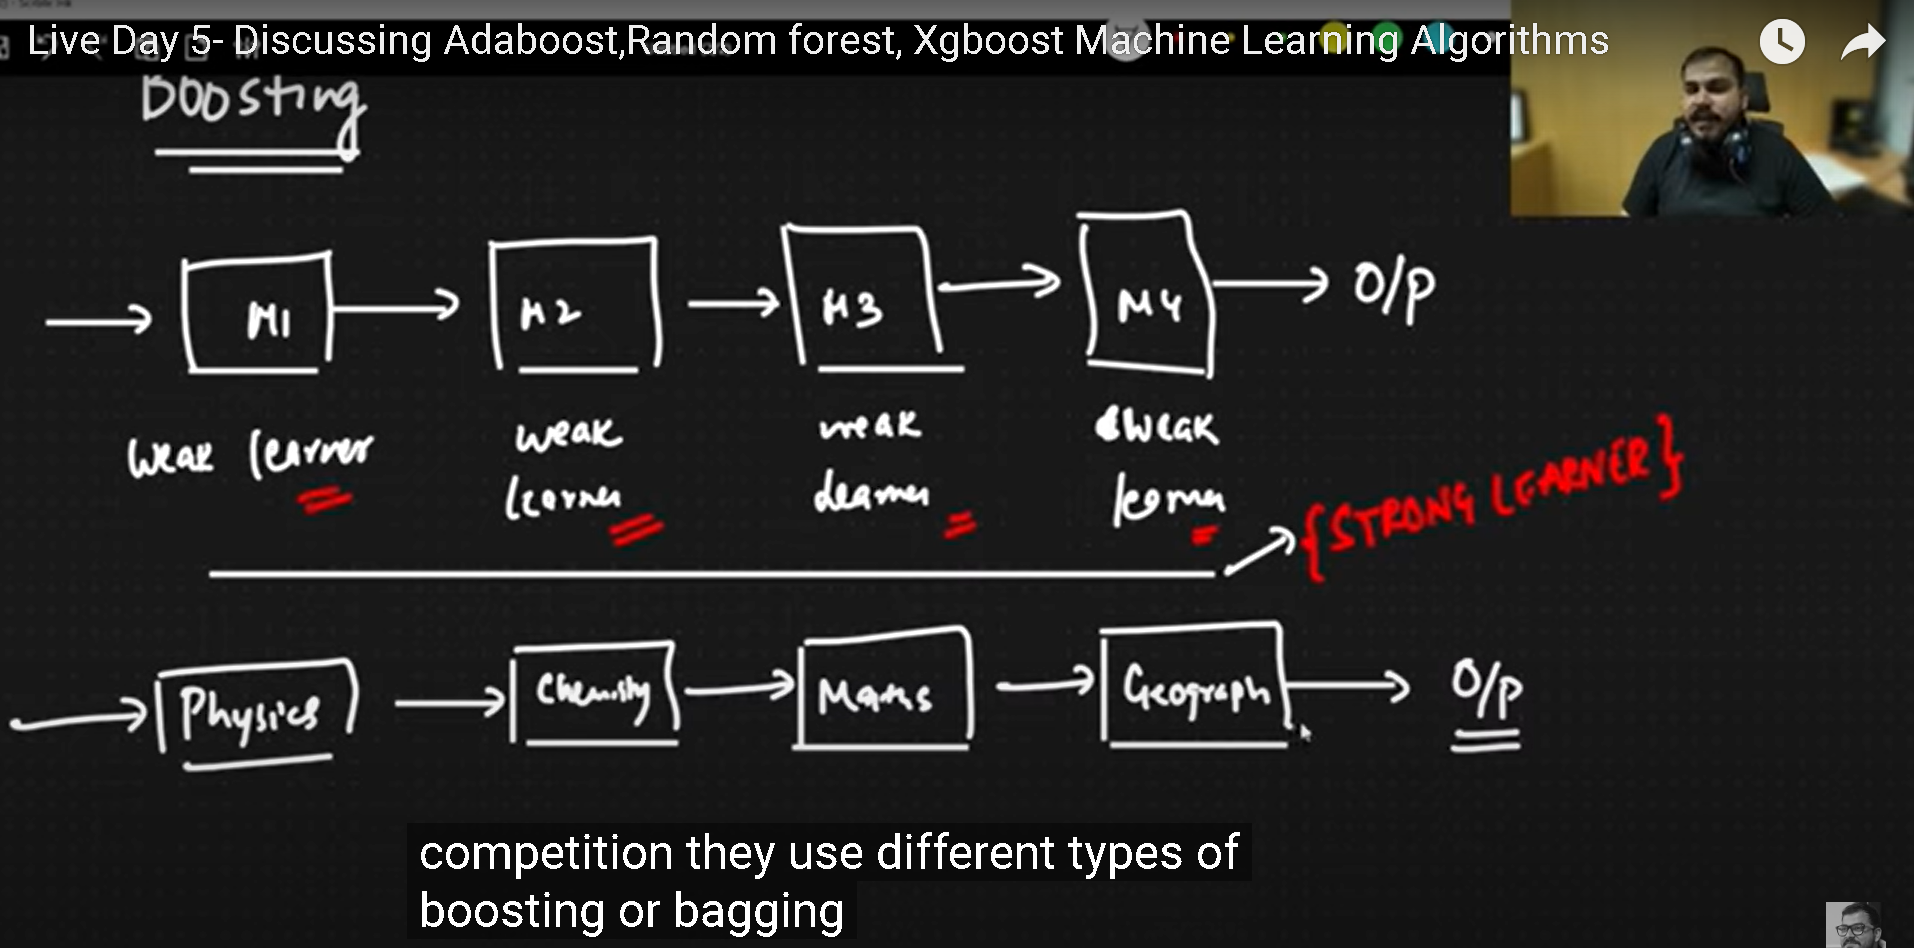 Live Day 5- Discussing Adaboost,Random forest, Xgboost Machine Learning Algorithms
Boosting
M1
M2
M3
M4
O/P
weak learner
weak
learner
weak
learner
weak
learner
{STRONG LEARNER}
Physics
Chemisty
Maths
Geograph
O/P
competition they use different types of
boosting or bagging